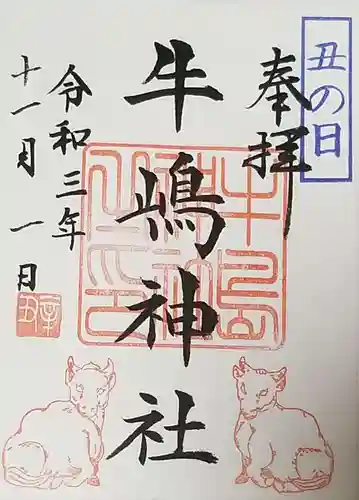 丑の日
奉拝
牛嶋神社
令和三年
十一月一日
牛島
神社
之印
辛丑